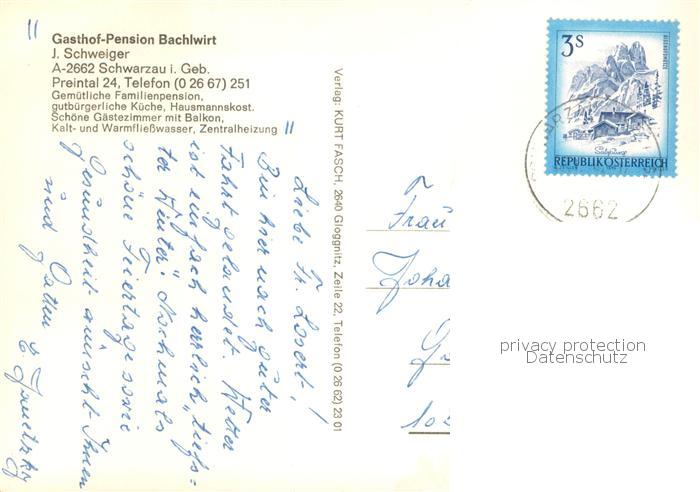 "
Gasthof-Pension Bachlwirt
J. Schweiger
A-2662 Schwarzau i. Geb.
Preintal 24, Telefon (0 26 67) 251
Gemütliche Familienpension,
gutbürgerliche Küche, Hausmannskost.
Schöne Gästezimmer mit Balkon,
Kalt- und Warmfließwasser, Zentralheizung "
Liebe Fr. Losert,!
Bin hier nach guter
Fahrt gelandet. Wetter
ist einfach herrlich "tiefs-
ter Winter". Nochmals
schöne Feiertage sowie
Gesundheit wünscht Ihnen
und Gatten
Verlag: KURT FASCH, 2640 Gloggnitz, Zeile 22, Telefon (0 26 62) 23 01
3 S
REPUBLIK ÖSTERREICH
2662
Frau
Joha
privacy protection
Datenschutz